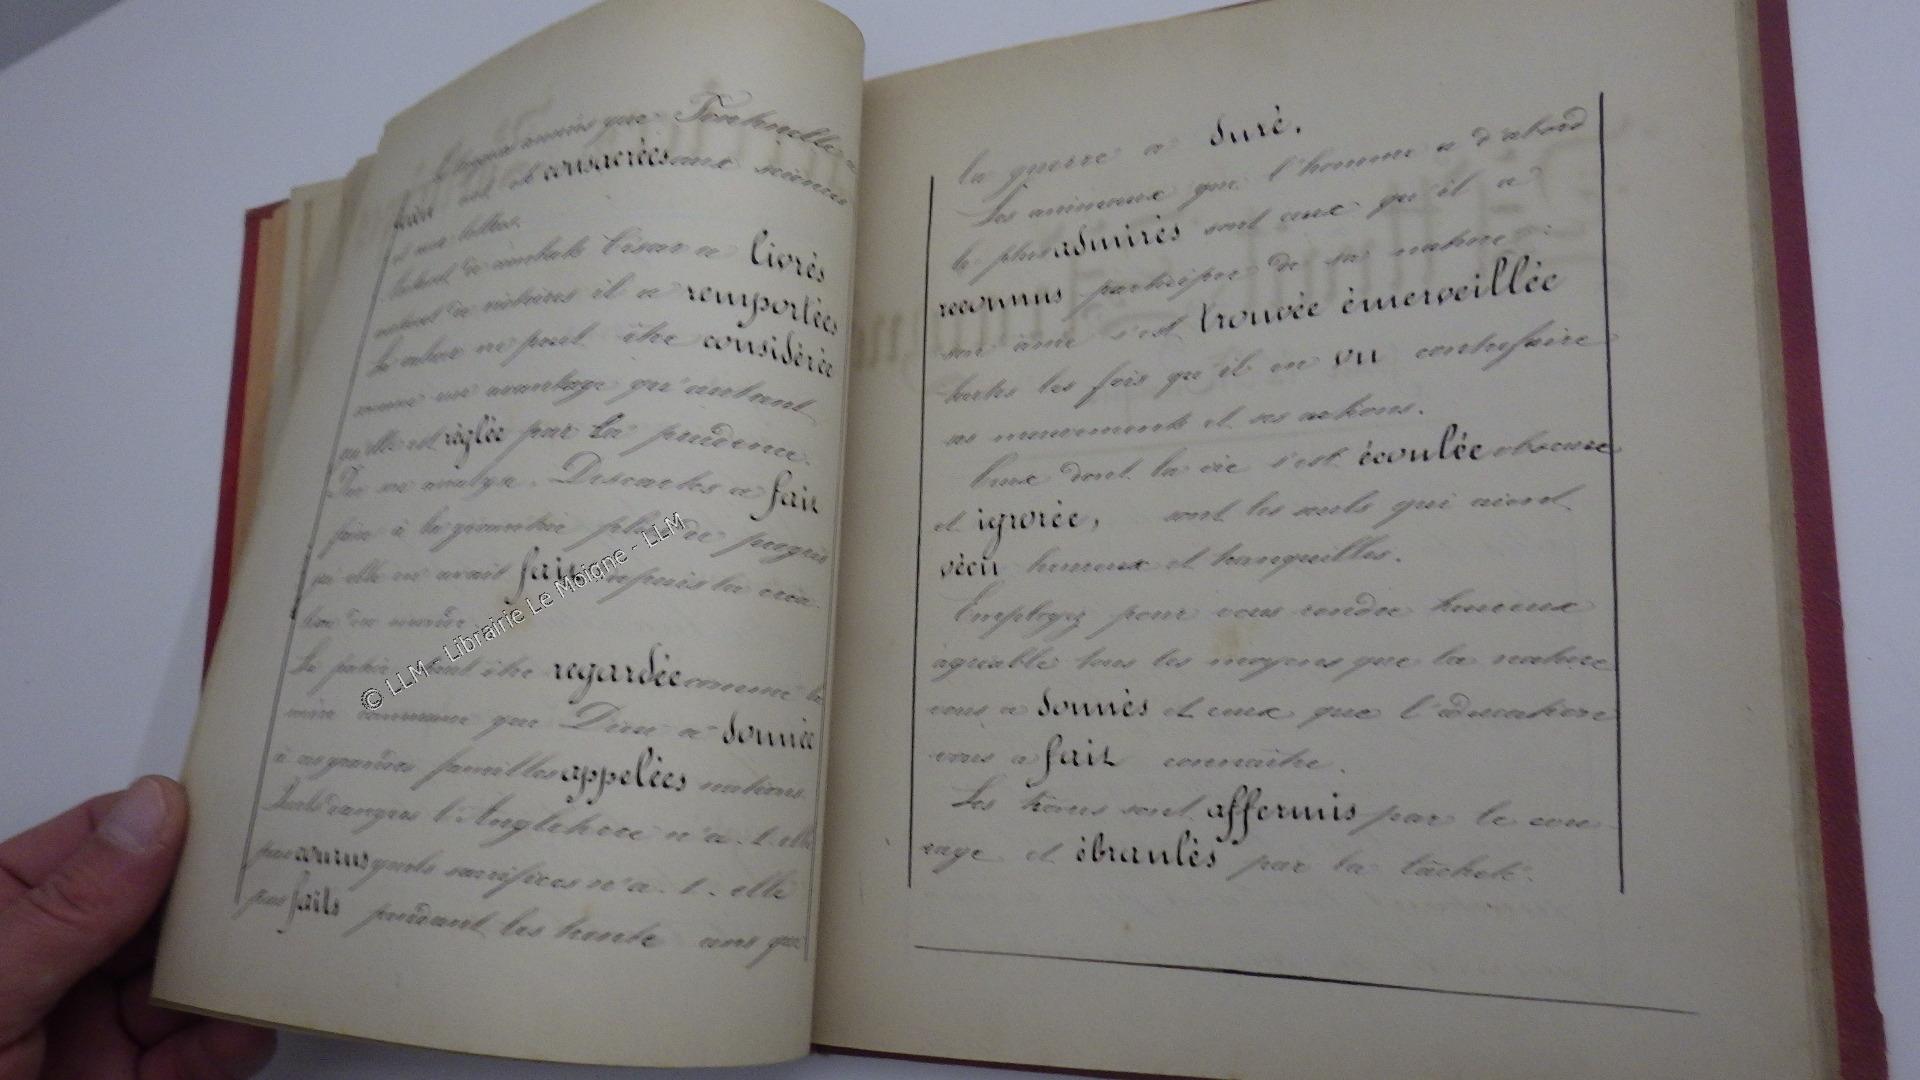 années que Fontenelle a
ont été consacrées aux sciences
et aux lettres.
Autant de combats César a livrés
autant de victoires il a remportées
La valeur ne peut être considérée
comme un avantage qu'autant
qu'elle est réglée par la prudence.
Par son analyse, Descartes a fait
faire à la géométrie plus de progrès
qu'elle n'en avait fait depuis la créa-
tion du monde.
La patrie doit être regardée comme la
mère commune que Dieu a donnée
à ces grandes familles appelées nations.
Quels dangers l'Angleterre n'a-t-elle
pas courus quels sacrifices n'a-t-elle
pas faits pendant les trente ans que
la guerre a duré.
Les animaux que l'homme a d'abord
le plus admirés sont ceux qu'il a
reconnus participer de sa nature :
son âme s'est trouvée émerveillée
toutes les fois qu'il en vu contrefaire
ses mouvements et ses actions.
Ceux dont la vie s'est écoulée obscure
et ignorée, sont les seuls qui aient
vécu heureux et tranquilles.
Employez pour vous rendre heureux
agréable tous les moyens que la nature
vous a donnés et ceux que l'éducation
vous a fait connaître.
Les trônes sont affermis par le cou-
rage et ébranlés par la lâcheté.
© LLM - Librairie Le Moigne - LLM